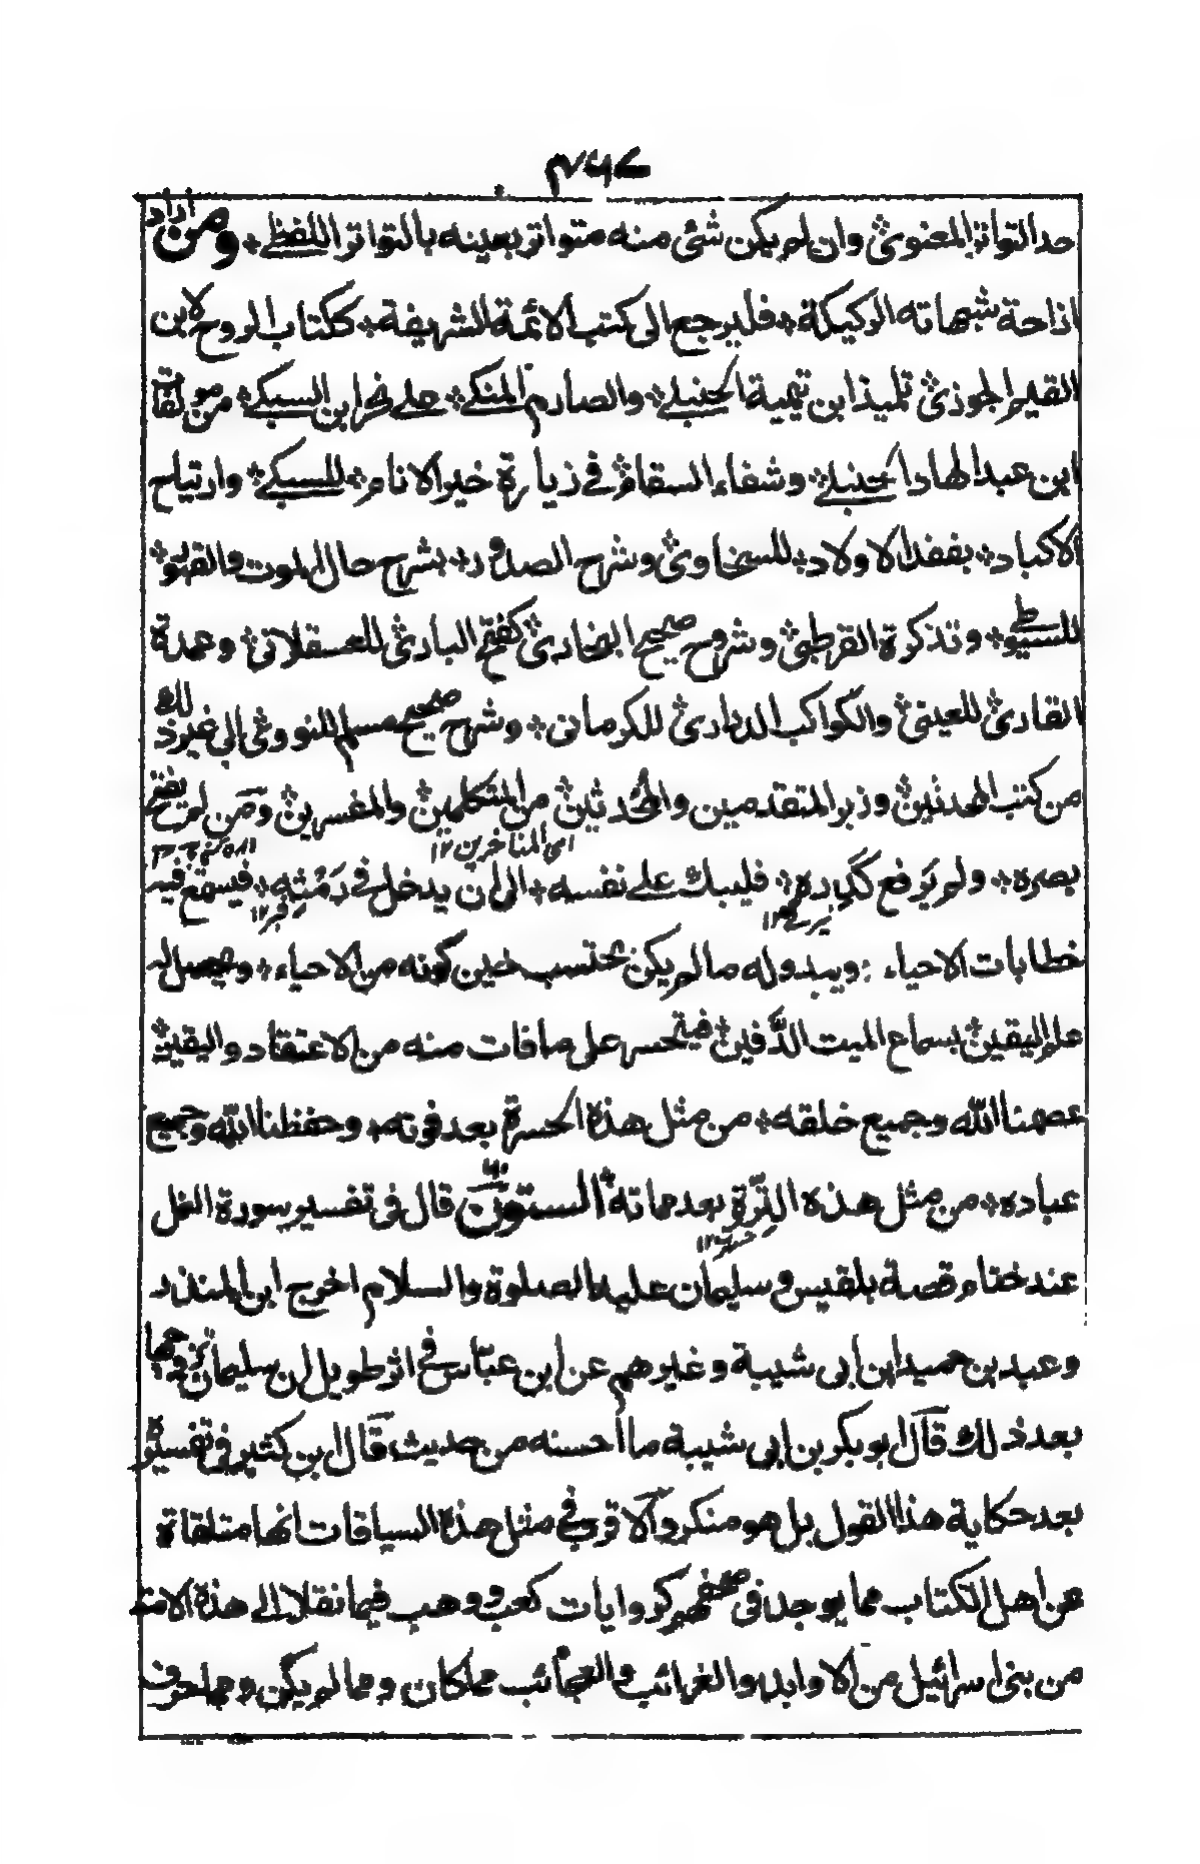 حد التواتر المعنوي وان لم يكن شئ منه متواتر بعينه بالتواتر اللفظے ومن اراد
ازاحة شبهاته الركيكة فليرجع الى كتب الائمة الشريفة ككتاب الروح لابن
القيم الجوزي تلميذ ابن تيمية الحنبلے والصارم المنكے علے نحر ابن السبكے من مولفات
ابن عبد الهاد الحنبلے وشفاء السقام فے زيارة خير الانام للسبكے وارتياح
الاكباد بفقد الاولاد للسخاوي وشرح الصدور بشرح حال الموت والقبور
للسيوطے وتذكرة القرطبي وشروح صحيح البخاري كفتح الباري للعسقلاني وعمدة
القاري للعيني والكواكب الدراري للكرماني وشرح صحيح مسلم للنووي الى غير ذلك
من كتب المحدثين وزبر المتقدمين والمحدثين من المتكلمين والمفسرين ومن لم يفتح
اى المتاخرين ١٢
بصره ولم يرفع كدره فليبك علے نفسه الى ان يدخل في رمسه فيسمع فيه
قبر ١٢
خطابات الاحياء ويبدو له ما لم يكن يحتسب حين كونه من الاحياء ويحصل له
علم اليقين بسماع الميت الدفين فيتحسر على ما فات منه من الاعتقاد واليقين
عصمنا الله وجميع خلقه من مثل هذه الحسرة بعد فوته وحفظنا الله وجميع
عباده من مثل هذه الترة بعد مماته الستون قال فى تفسير سورة النمل
حسرة ١٢
عند ختام قصة بلقيس و سليمان عليه الصلوة والسلام اخرج ابن المنذر
وعبد بن حميد ابن ابى شيبة وغيرهم عن ابن عباس فے اثر طويل ان سليمان تزوجها
بعد ذلك قال ابو بكر بن ابى شيبة ما أحسنه من حديث قال ابن كثير فى تفسيره
بعد حكاية هذا القول بل هو منكر والاقرب فے مثل هذه السياقات انها متلقاة
عن اهل الكتاب مما يوجد فى صحفهم كروايات كعب ووهب فيما نقلا الى هذه الامة
من بنى اسرائيل من الاوابد والغرائب والعجائب مما كان ومما لم يكن ومما حرف